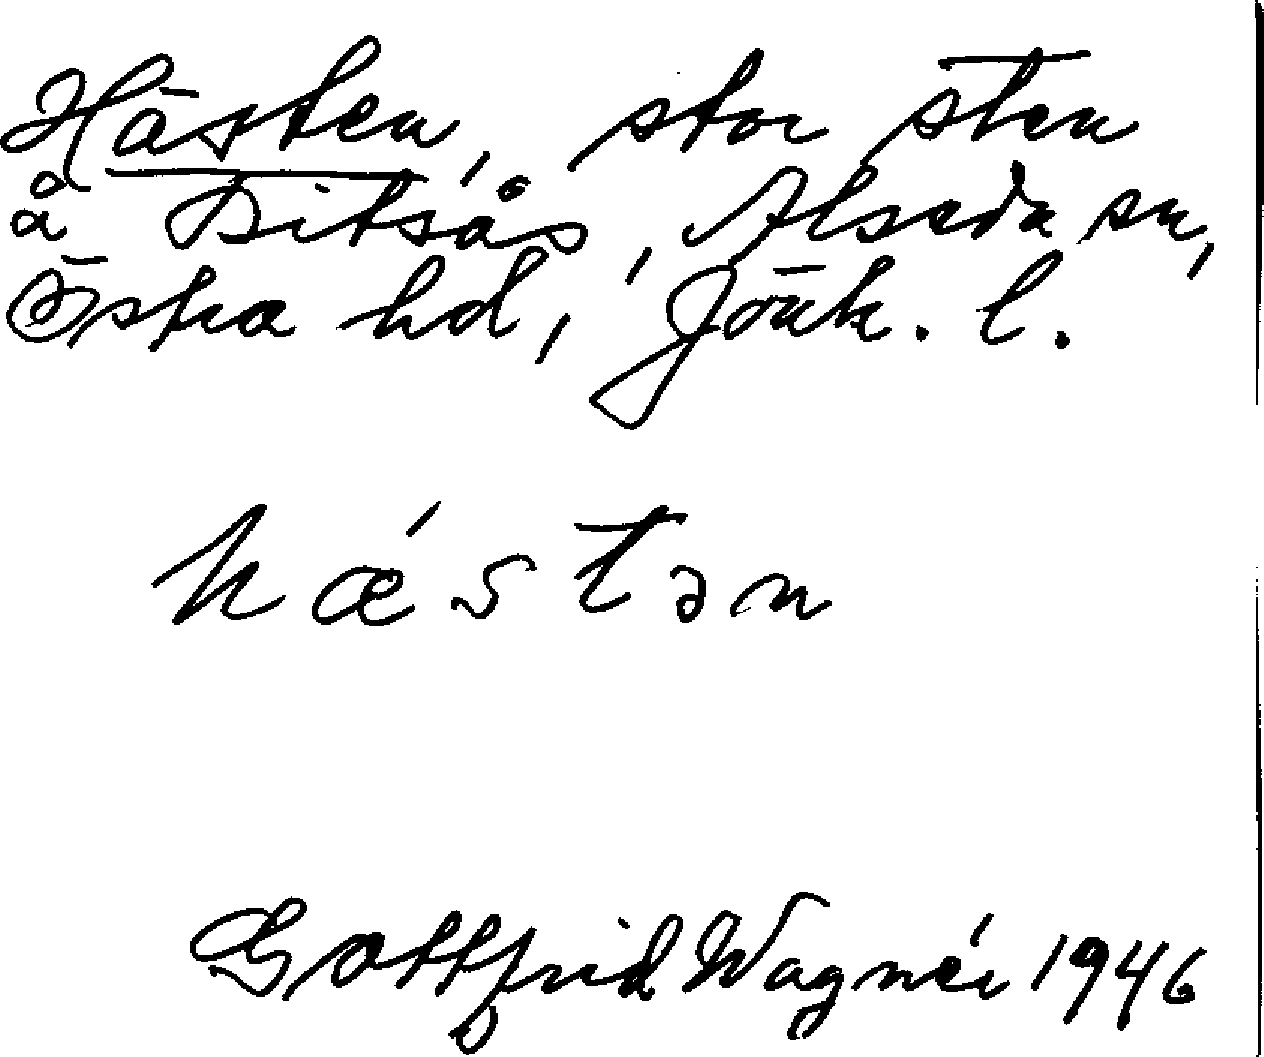 Hästen, stor sten
å Bitsås, Alseda sn,
Östra hd, Jönk. l.
hǽstən
Gottfrid Wagnér 1946